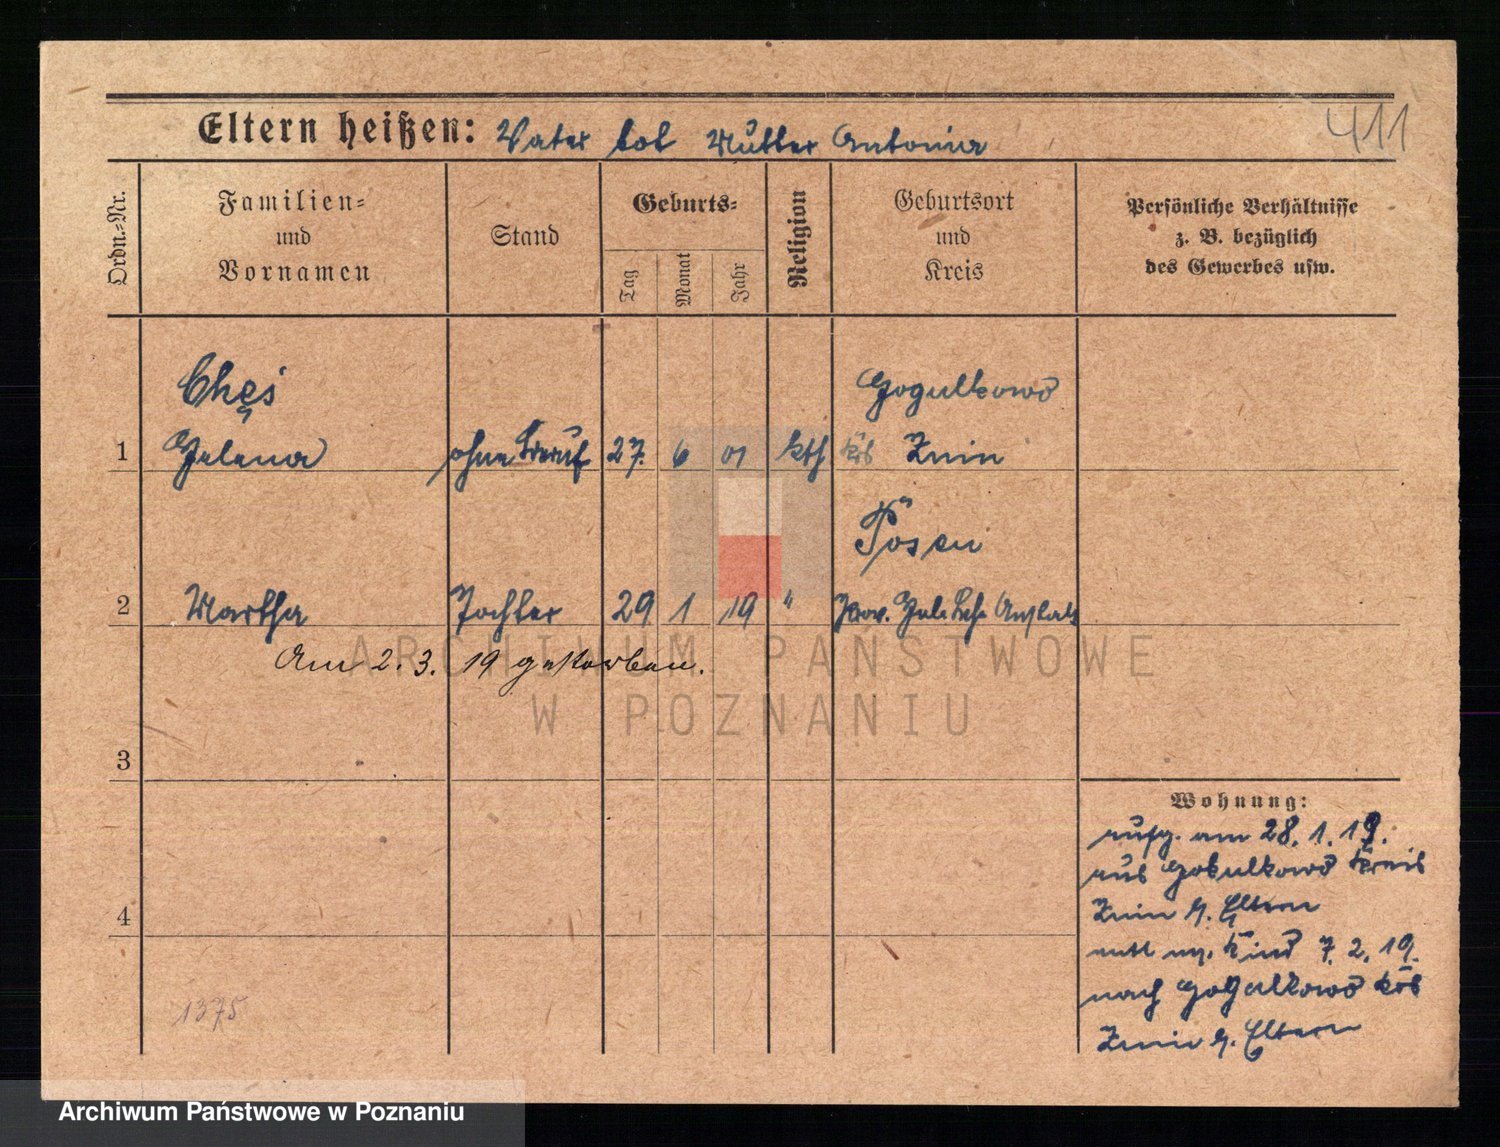 411
Eltern heißen: Vater tot Mutter Antonia
Ordn.-Nr.
Familien-
und
Vornamen
Stand
Geburts-
Tag
Monat
Jahr
Religion
Geburtsort
und
Kreis
Persönliche Verhältnisse
z. B. bezüglich
des Gewerbes usw.
Chęś
Gogulkowo
1 Helena ohne Beruf 27. 6 01 kth Krs Znin
Posen
2 Martha Tochter 29 1 19 " Prov. Heb. Anstalt
Am 2. 3. 19 gestorben.
ARCHIWUM PAŃSTWOWE
W POZNANIU
3
Wohnung:
aufg. am 28. 1. 19.
aus Gogulkowo Kreis
Znin z. Eltern
4
entl. Kind 7. 2. 19.
nach Gogulkowo Krs
Znin z. Eltern
1375
Archiwum Państwowe w Poznaniu